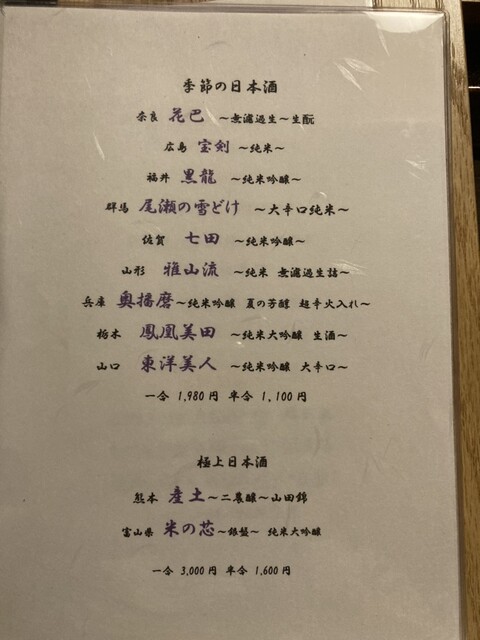 季節の日本酒
奈良 花巴 〜無濾過生〜生酛
広島 宝剣 〜純米〜
福井 黒龍 〜純米吟醸〜
群馬 尾瀬の雪どけ 〜大辛口純米〜
佐賀 七田 〜純米吟醸〜
山形 雅山流 〜純米 無濾過生詰〜
兵庫 奥播磨〜純米吟醸 夏の芳醇 超辛火入れ〜
栃木 鳳凰美田 〜純米大吟醸 生酒〜
山口 東洋美人 〜純米吟醸 大辛口〜
一合 1,980円 半合 1,100円
極上日本酒
熊本 産土〜二農醸〜山田錦
富山県 米の芯〜銀盤〜 純米大吟醸
一合 3,000円 半合 1,600円